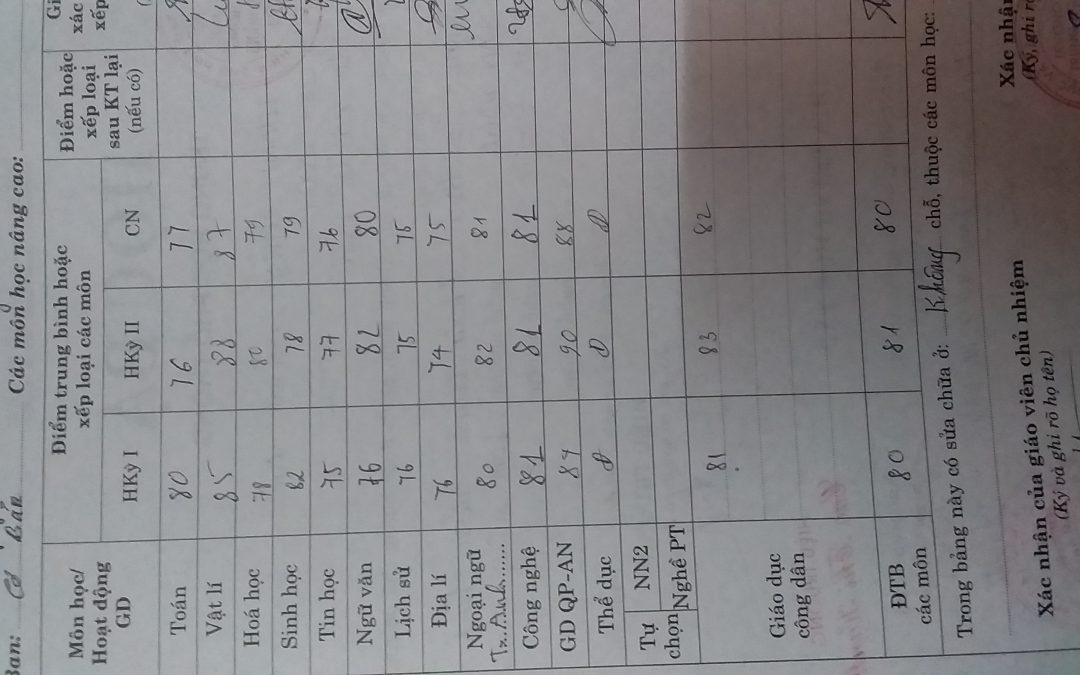 Ban: Cơ bản Các môn học nâng cao:
Môn học/ Hoạt động GD
Điểm trung bình hoặc xếp loại các môn
Điểm hoặc xếp loại sau KT lại (nếu có)
HKỳ I HKỳ II CN
Toán 80 76 77
Vật lí 85 88 87
Hoá học 78 80 79
Sinh học 82 78 79
Tin học 75 77 76
Ngữ văn 76 82 80
Lịch sử 76 75 75
Địa lí 76 74 75
Ngoại ngữ T. Anh 80 82 81
Công nghệ 81 81 81
GD QP-AN 90 88
Thể dục Đ Đ Đ
Tự chọn NN2
Nghề PT
Giáo dục công dân 81 83 82
ĐTB các môn 80 81 80
Trong bảng này có sửa chữa ở: Không chỗ, thuộc các môn học:
Xác nhận của giáo viên chủ nhiệm
(Ký và ghi rõ họ tên)
Xác nhận
(Ký, ghi rõ